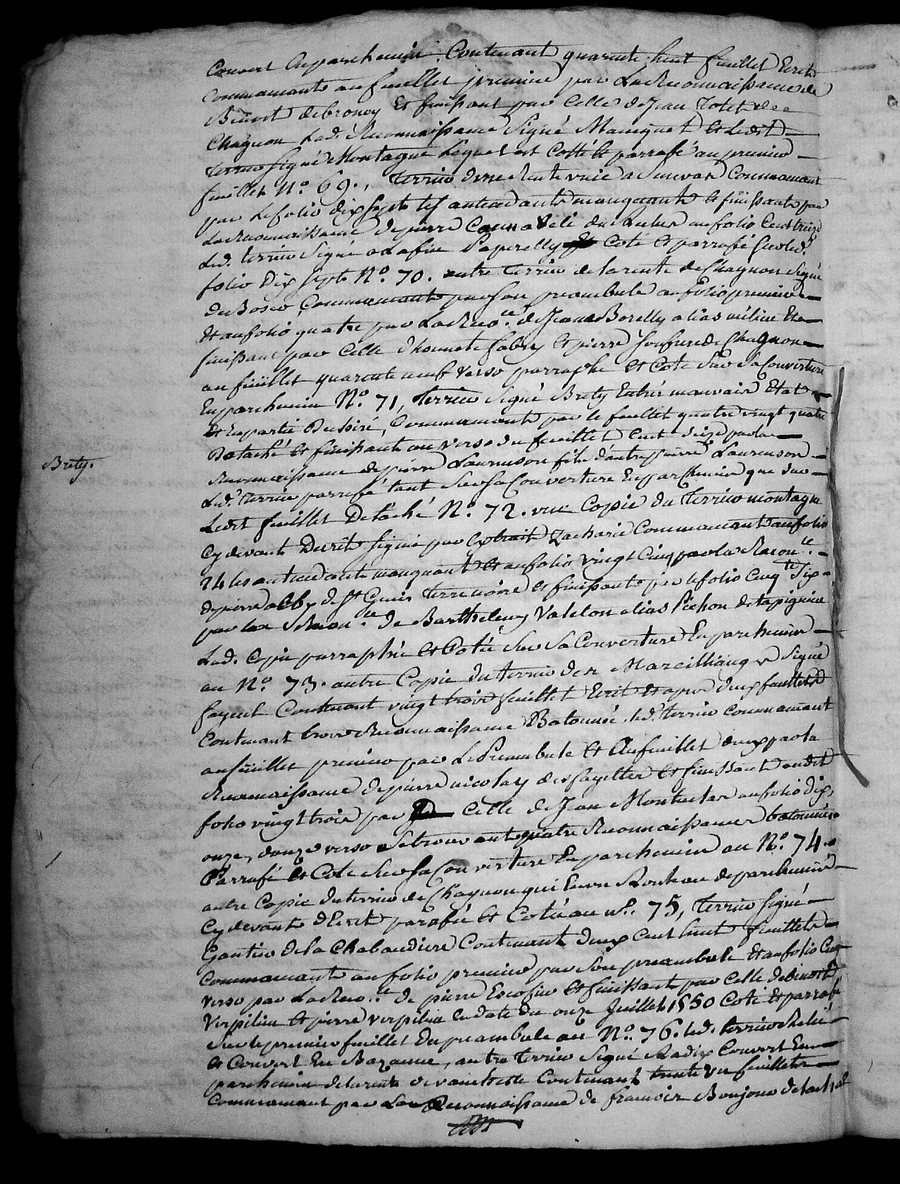 Couvert En parchemin. Contenant quarente huit feuillet Ecrit
Commancants au feuillet premier par La Reconnaissance de
Benoit debroncy Et finissant par Celle de Jean Tolet de
Chagnon Lad. Reconnaissance Signé Maniquet et Ledit
terrier signé Montagne Lequel est Cotté & parrafé au premier
feuillet No. 69., terrier de rente a Commancant
par Le folio dix sept les antecedants manquant et finissante par
La Reconnaissance de pierre du au folio Cent treize
Led. terrier Signé a La fin Coté et parrafé Sur led.
folio Dix Sept No. 70. autre terrier de la rente de Chagnon Signé
du Bosco Commancant par Son preambule au folio premier
et au folio quatre par La Reco.ce de Jean Borelly alias Et
finissant par Celle d'honnete fabry et pierre de Chagnon
au feüillet quarente neuf verso parraphé et Coté Sur Sa Couverture
En parchemin No. 71, terrier Signé Brety En trés mauvais Etat
et En partie Dechiré, Commancant par le feuillet quatre vingt quatre
Détaché et finissant au verso du feuillet Cent Seize par la
Brety.
Reconnaissance de pierre Laurenson fils d'autre pierre Laurenson
Led. terrier parrafé tant Sur Sa Couverture En parchemin que Sur
Ledit feuillet Detaché No. 72. une Copie du terrier montagne
Cy devant Decrit signé par Extrait Zacharie Commancant au folio
24 les antecedants manquant et au folio vingt Cinq par la Recon.ce
de pierre alby de St. Genis terre noire et finissante par le folio
par La Recon.ce de Barthelemy Valelon alias Pichon de
Lad. Copie parraphée et Cotée Sur Sa Couverture En parchemin
au No. 73. autre Copie du terrier de Marcilliang Signé
fayeul Contenant vingt trois feuillet Ecrit et apres deux feuillets
Contenant trois Reconnaissance Batonnée led. terrier Commancant
au feüillet premier par Le Preambule et Au feuillet deux par la
Reconnaissance de pierre nicolas des fayettes et finissant audit
folio vingt trois par Celle de Jean au folio dix,
onze, douze verso Se trouvant quatre Reconnaissances batonnées
Parrafé et Coté Sur Sa Couverture En parchemin au No. 74.
autre Copie du terrier de Chagnon qui En un Rouleau de parchemin
Cy devant d'Ecrit parafé et Cotté au no. 75, terrier Signé
Gantier de la Chabaudiere Contenant Deux Cent huit feuillets
Commancant au folio premier par Son preambule et au folio
verso par La Reco.ce de pierre Escofier et finissant par Celle de benoit
Verpilieu et pierre verpilieu En date du onze Juillet 1550 Coté et parrafé
Sur le premier feuillet du preambule au No. 76. led. terrier Relié
et Couvert En Bazanne, autre terrier Signé Radix Couvert En
parchemin de la rente de Contenant trente un feuillets
Commancant par La Reconnaissance de francois Bonjour de